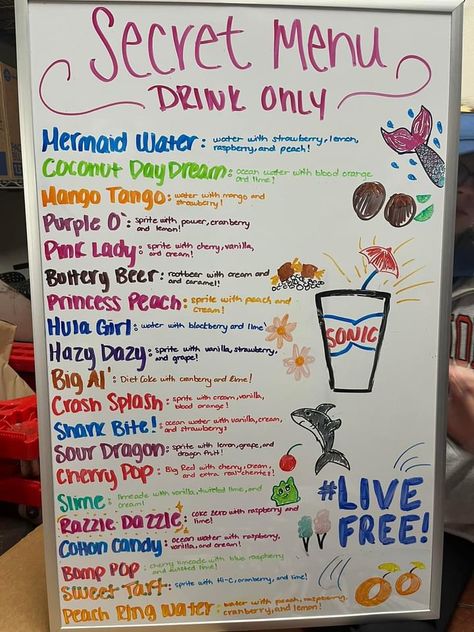 Secret Menu
DRINK ONLY
Mermaid Water: water with strawberry, lemon,
raspberry, and peach!
Coconut DayDream: ocean water with blood orange
and lime!
Mango Tango: water with mango and
strawberry!
Purple O: sprite with power, cranberry
and lemon!
Pink Lady: sprite with cherry, vanilla,
and cream!
Buttery Beer: rootbeer with cream and
and caramel!
Princess Peach: sprite with peach and
cream!
Hula Girl: water with blackberry and lime!
Hazy Dazy: sprite with vanilla, strawberry,
and grape!
Big Al: Diet Coke with cranberry and lime!
Crash Splash: sprite with cream, vanilla,
blood orange!
Shark Bite!: ocean water with vanilla, cream,
and strawberry!
Sour Dragon: sprite with lemon, grape, and
dragon fruit!
Cherry Pop: Big Red with cherry, cream,
and extra real cherries!
Slime: limeade with vanilla, twisted lime, and
cream!
Razzle Dazzle: coke zero with raspberry and
lime!
Cotton Candy: ocean water with raspberry,
vanilla, and cream!
Bomp Pop: cherry limeade with blue raspberry
and twisted lime!
Sweet Tart: sprite with Hi-C, cranberry, and lime!
Peach Ring Water: water with peach, raspberry,
cranberry, and lemon!
SONIC
#LIVE
FREE!